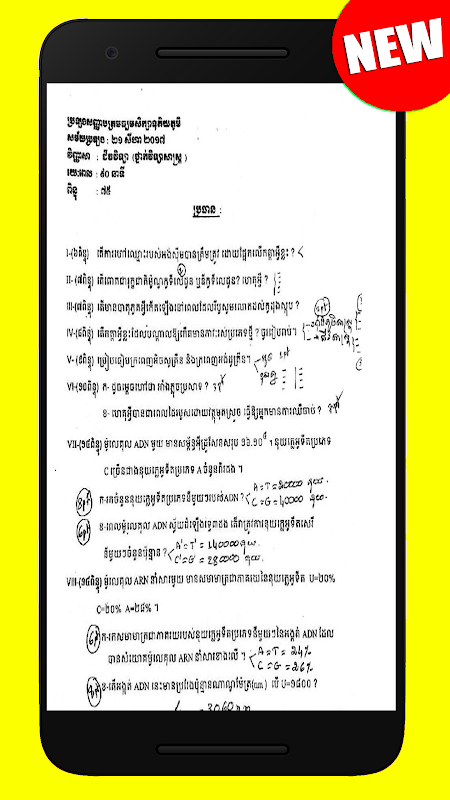 NEW
ប្រឡងសញ្ញាបត្រមធ្យមសិក្សាទុតិយភូមិ
សម័យប្រឡង : ២១ សីហា ២០១៧
វិញ្ញាសា : ជីវវិទ្យា (ថ្នាក់វិទ្យាសាស្ត្រ)
រយៈពេល : ៩០ នាទី
ពិន្ទុ : ៧៥
ប្រធាន :
I-(៦ពិន្ទុ) តើការហៅឈ្មោះរបស់អង់ស៊ីមបានត្រឹមត្រូវ ដោយផ្អែកលើកត្តាអ្វីខ្លះ ?
II- (៧ពិន្ទុ) តើពោតជារុក្ខជាតិម៉ូណូកូទីលេដូន ឬឌីកូទីលេដូន? ហេតុអ្វី ?
III-(៧ពិន្ទុ) តើមានបាតុភូតអ្វីកើតឡើងនៅពេលដែលរីបូសូមឈោតដល់កូដុងស្តុប ?
IV-(៨ពិន្ទុ) តើកត្តាអ្វីខ្លះដែលបណ្តាលឱ្យកើតមានការរស់ប្រភេទថ្មី ? ចូររៀបរាប់។
V- (៩ពិន្ទុ) ប្រៀបធៀបក្រពេញអិចសូគ្រីន និងក្រពេញអង់ដូគ្រីន។
VI-(១០ពិន្ទុ) ក- ដូចម្តេចហៅថា រលាំងភ្ញោចប្រសាទ ?
ខ- ហេតុអ្វីបានជាពេលដៃរបួសដោយវត្ថុមុតស្រួច ធ្វើឱ្យអ្នកមានការឈឺចាប់ ?
VII-(១៤ពិន្ទុ) ម៉ូលេគុល ADN មួយ មានសម្ព័ន្ធអ៊ីដ្រូសែនសរុប ១៦.១០⁴ ។ នុយក្លេអូទីតប្រភេទ
C ច្រើនជាងនុយក្លេអូទីតប្រភេទ A ចំនួន២ដង ។
ក-រកចំនួននុយក្លេអូទីតប្រភេទនីមួយៗរបស់ADN ? A=T=20000 នុយ.
C=G=40000 នុយ.
ខ-ពេលម៉ូលេគុល ADN ស្វ័យដំឡើងទ្វេ៣ដង តើវាត្រូវការនុយក្លេអូទីតសេរី
នីមួយៗចំនួនប៉ុន្មាន ? A'=T'=140000 នុយ.
C'=G'=280000 នុយ.
VIII-(១៤ពិន្ទុ) ម៉ូលេគុល ARN នាំសារមួយ មានសមាមាត្រជាភាគរយនៃនុយក្លេអូទីត U=២០%
C=២០% A=២៨% ។
ក-រកសមាមាត្រជាភាគរយរបស់នុយក្លេអូទីតប្រភេទនីមួយៗនៃអង្កត់ ADN ដែល
បានសំយោគម៉ូលេគុល ARN នាំសារខាងលើ ។ A=T=24%
C=G=26%
ខ-តើអង្កត់ ADN នេះមានប្រវែងប៉ុន្មានណាណូម៉ែត្រ(nm) បើ U=១៨០០ ?
= 3060 nm